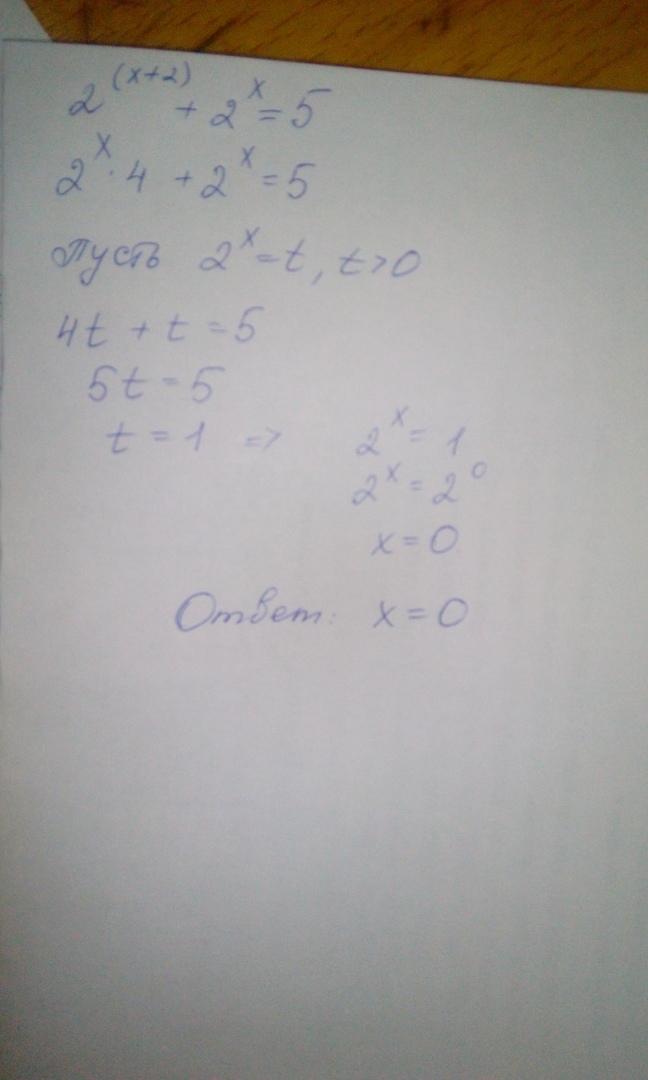 2^(x+2) + 2^x = 5
2^x · 4 + 2^x = 5
Пусть 2^x = t, t > 0
4t + t = 5
5t = 5
t = 1 => 2^x = 1
2^x = 2^0
x = 0
Ответ: x = 0